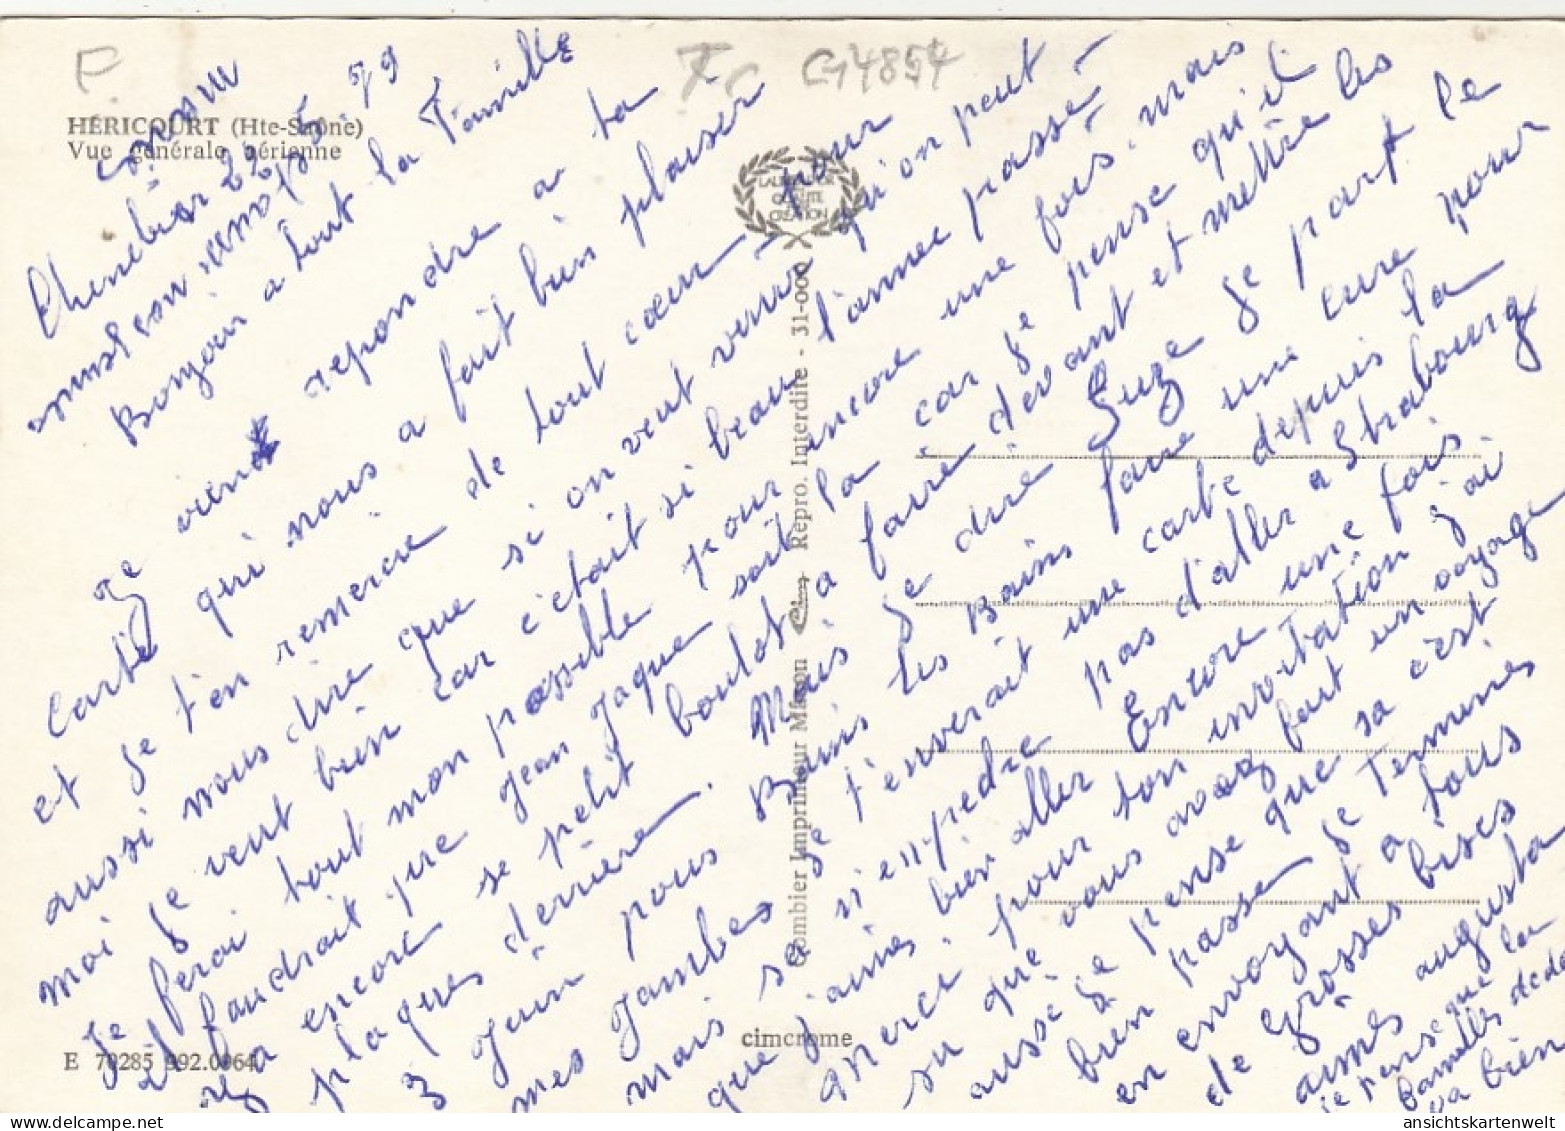 F
TC
G4854
HÉRICOURT (Hte-Saône)
Vue générale aérienne
LAURÉAT
QUALITÉ
CRÉATION
Chenebier 22.5.79
Bonjour a tout la Famille
Je vient repondre a ta
carte qui nous a fait bien plaisir
et je t'en remercie de tout cœur pour
aussi nous dire que si on veut venir qu'on peut
moi je veut bien car c'était si beau l'annee passé
Je ferai tout mon possible pour encore une fois. mais
il faudrait que Jean Jaque soit la car je pense qu'il
y a encore se petit boulot a faire devant et mettre les
plaques derrière. Mais je dire Suze je part le
3 Juin pour Bains les Bains faire une cure pour
mes Jambes je t'enverait une carte depuis la
mais sa n'empedre pas d'aller a Strabourg
que j'aimes bien aller Encore une fois
Merci pour ton invitation j'ai
su que vous avez fait un voyage
aussé je pense que sa c'est
bien passer je Terminés
en envoyant a tous
de Grosses bises
aimés augusta
je pense que la
famille dede
va bien
Combier Imprimeur Mâcon - Repro. Interdite - 31-000
cimcrome
E 70285 992.0064
ansichtskartenwelt